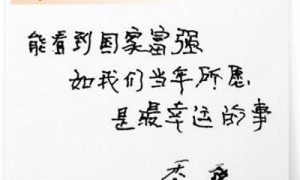 能看到国家富强
如我们当年所愿
是最幸运的事